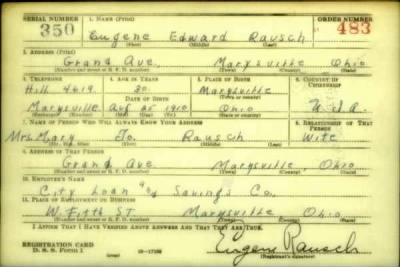 SERIAL NUMBER 1. NAME (Print) ORDER NUMBER
350 Eugene Edward Rausch 483
(First) (Middle) (Last)
2. ADDRESS (Print)
Grand Ave. Marysville Ohio
(Number and street or R. F. D. number) (Town) (County) (State)
3. TELEPHONE 4. AGE IN YEARS 5. PLACE OF BIRTH 6. COUNTRY OF CITIZENSHIP
30 Marysville
DATE OF BIRTH (Town or county)
Marysville Aug 25 1910 Ohio U.S.A.
7. NAME OF PERSON WHO WILL ALWAYS KNOW YOUR ADDRESS 8. RELATIONSHIP OF THAT PERSON
Mrs. Mary Jo. Rausch Wife
(First) (Middle) (Last)
9. ADDRESS OF THAT PERSON
Grand Ave Marysville Ohio
(Number and street or R. F. D. number) (Town) (County) (State)
10. EMPLOYER'S NAME
City Loan & Savings Co.
11. PLACE OF EMPLOYMENT OR BUSINESS
W. Fifth ST Marysville Ohio
(Number and street or R. F. D. number) (Town) (County) (State)
I AFFIRM THAT I HAVE VERIFIED ABOVE ANSWERS AND THAT THEY ARE TRUE.
REGISTRATION CARD
D. S. S. FORM 1 Eugene Rausch
(Registrant's signature)